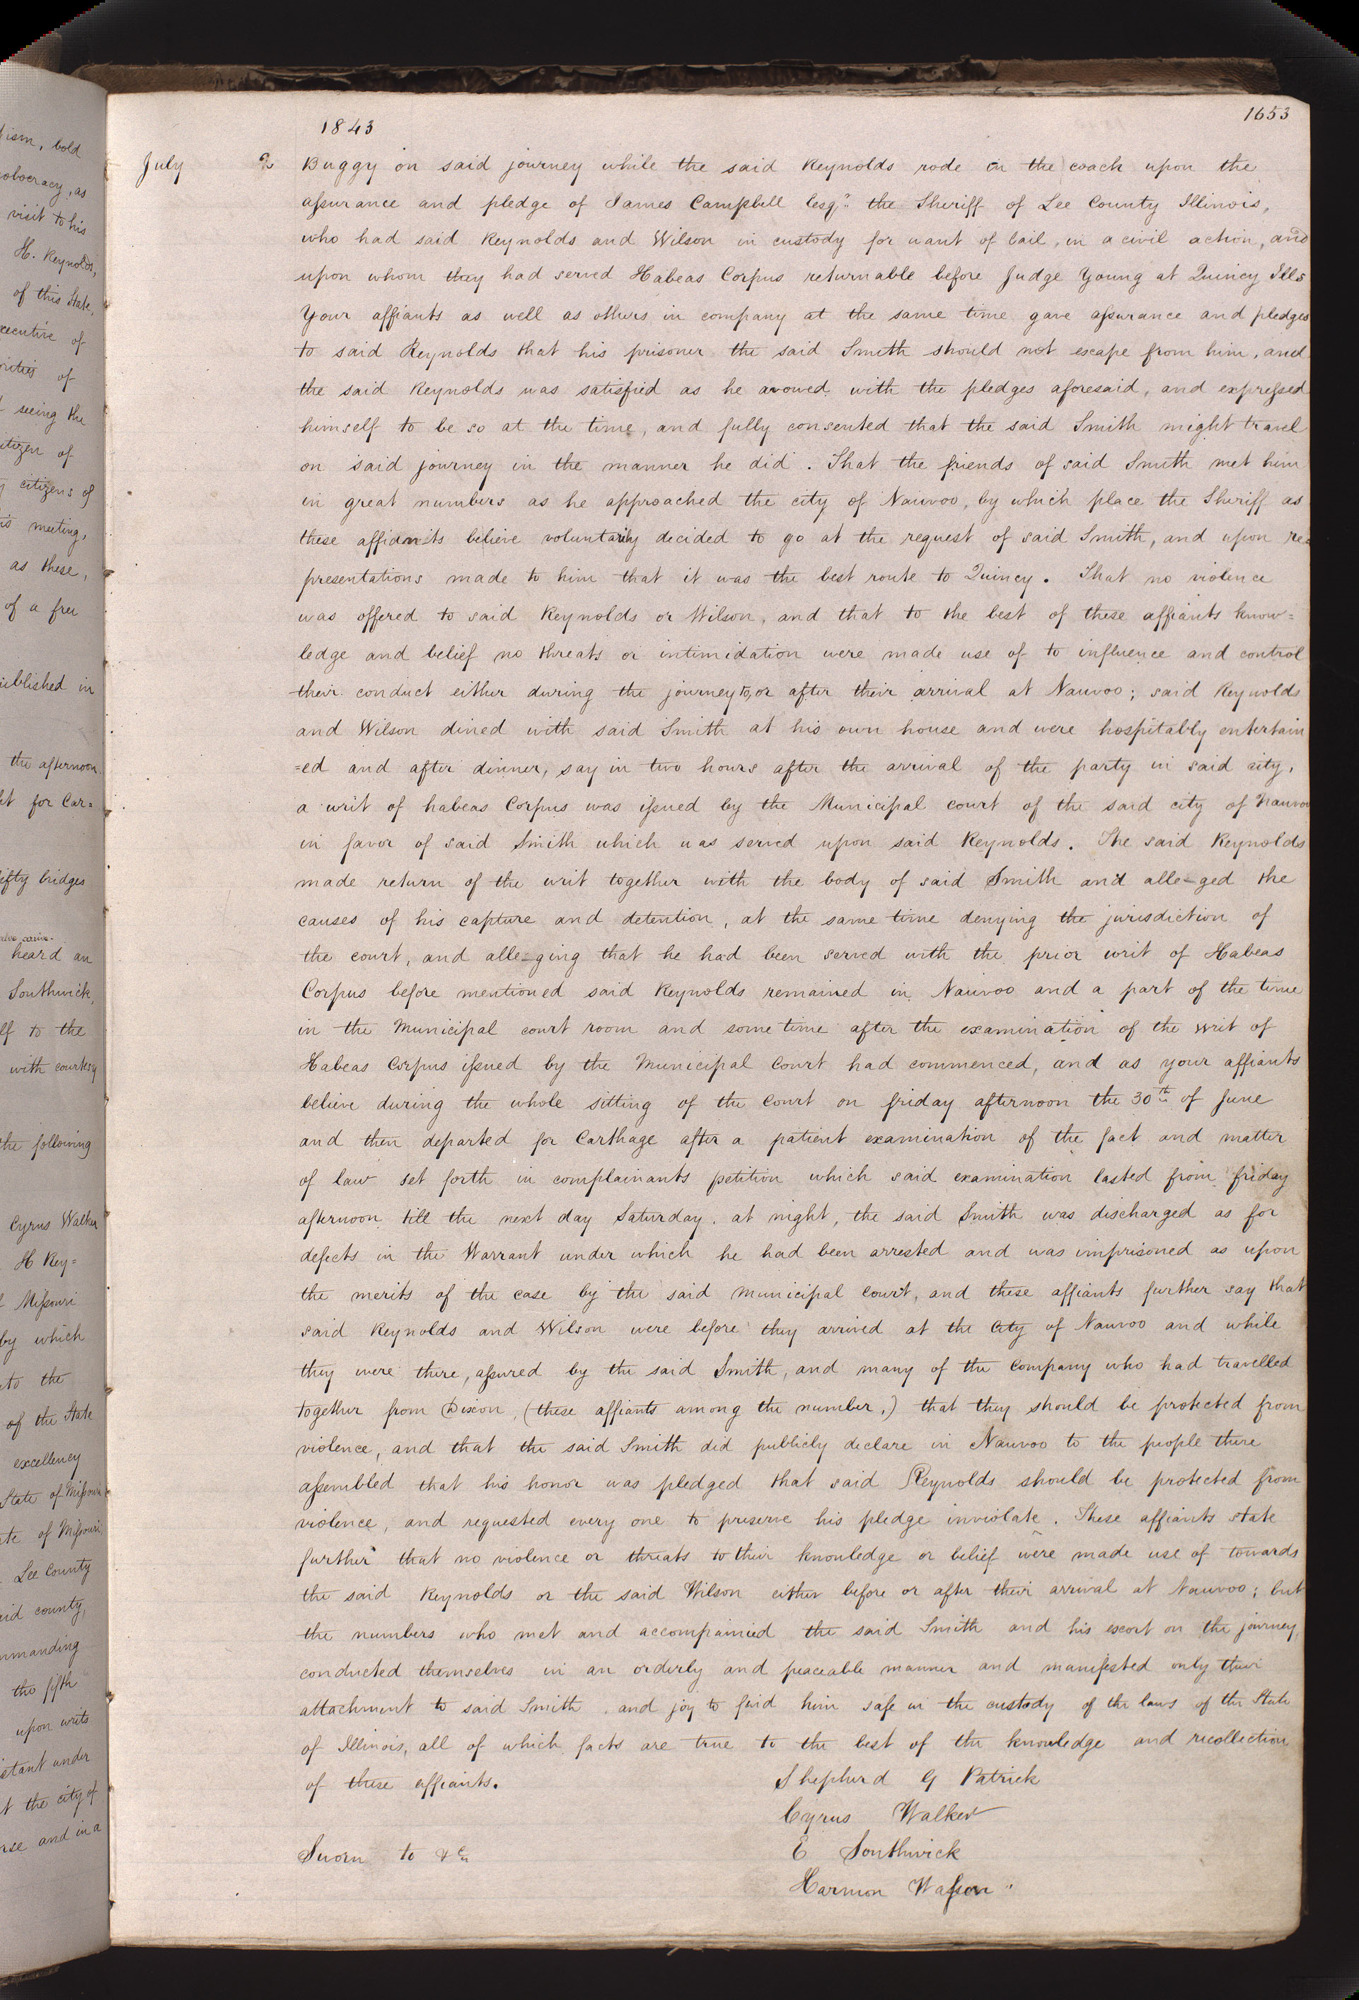 1653
1843
July 2 Buggy on said journey while the said Reynolds rode in the coach upon the
assurance and pledge of James Campbell Esqr. the Sheriff of Lee County Illinois,
who had said Reynolds and Wilson in custody for want of bail, in a civil action, and
upon whom they had served Habeas Corpus returnable before Judge Young at Quincy Ills
Your affiants as well as others in company at the same time gave assurance and pledges
to said Reynolds that his prisoner the said Smith should not escape from him, and
the said Reynolds was satisfied as he avowed with the pledges aforesaid, and expressed
himself to be so at the time, and fully consented that the said Smith might travel
on said journey in the manner he did. That the friends of said Smith met him
in great numbers as he approached the city of Nauvoo, by which place the Sheriff as
these affidavits believe voluntarily decided to go at the request of said Smith, and upon re=
presentations made to him that it was the best route to Quincy. That no violence
was offered to said Reynolds or Wilson, and that to the best of these affiants know=
ledge and belief no threats or intimidation were made use of to influence and control
their conduct either during the journey to, or after their arrival at Nauvoo; said Reynolds
and Wilson dined with said Smith at his own house and were hospitably entertain
=ed and after dinner, say in two hours after the arrival of the party in said city,
a writ of habeas Corpus was issued by the Municipal court of the said city of Nauvoo
in favor of said Smith which was served upon said Reynolds. The said Reynolds
made return of the writ together with the body of said Smith and alle-ged the
causes of his capture and detention, at the same time denying the jurisdiction of
the court, and alle-ging that he had been served with the prior writ of Habeas
Corpus before mentioned said Reynolds remained in Nauvoo and a part of the time
in the Municipal court room and some time after the examination of the writ of
Habeas Corpus issued by the Municipal Court had commenced, and as your affiants
believe during the whole sitting of the Court on friday afternoon the 30th of June
and then departed for Carthage after a patient examination of the fact and matter
of law set forth in complainants petition which said examination lasted from friday
afternoon till the next day Saturday. at night, the said Smith was discharged as for
defects in the Warrant under which he had been arrested and was imprisoned as upon
the merits of the case by the said Municipal Court, and these affiants further say that
said Reynolds and Wilson were before they arrived at the City of Nauvoo and while
they were there, assured by the said Smith, and many of the Company who had travelled
together from Dixon, (these affiants among the number,) that they should be protected from
violence, and that the said Smith did publicly declare in Nauvoo to the people there
assembled that his honor was pledged that said Reynolds should be protected from
violence, and requested every one to preserve his pledge inviolate. These affiants state
further that no violence or threats to their knowledge or belief were made use of towards
the said Reynolds or the said Wilson either before or after their arrival at Nauvoo; but
the numbers who met and accompanied the said Smith and his escort on the journey,
conducted themselves in an orderly and peaceable manner and manifested only their
attachment to said Smith, and joy to find him safe in the custody of the laws of the State
of Illinois, all of which facts are true to the best of the knowledge and recollection
of these affiants.
Shepherd G Patrick
Cyrus Walker
Sworn to &c
E Southwick
Harmon Wasson.
bold
visit to his
H. Reynolds,
of this State,
of
of
seeing the
of
citizens of
meeting,
as these,
of a free
in
the afternoon
for Car=
bridges
heard an
Southwick,
to the
with courtesy
the following
Cyrus Walker
H Rey=
Missouri
by which
the
of the State
excellency
State of Missouri
of Missouri,
Lee County
said county,
the fifth
upon writs
under
at the city of
and in a